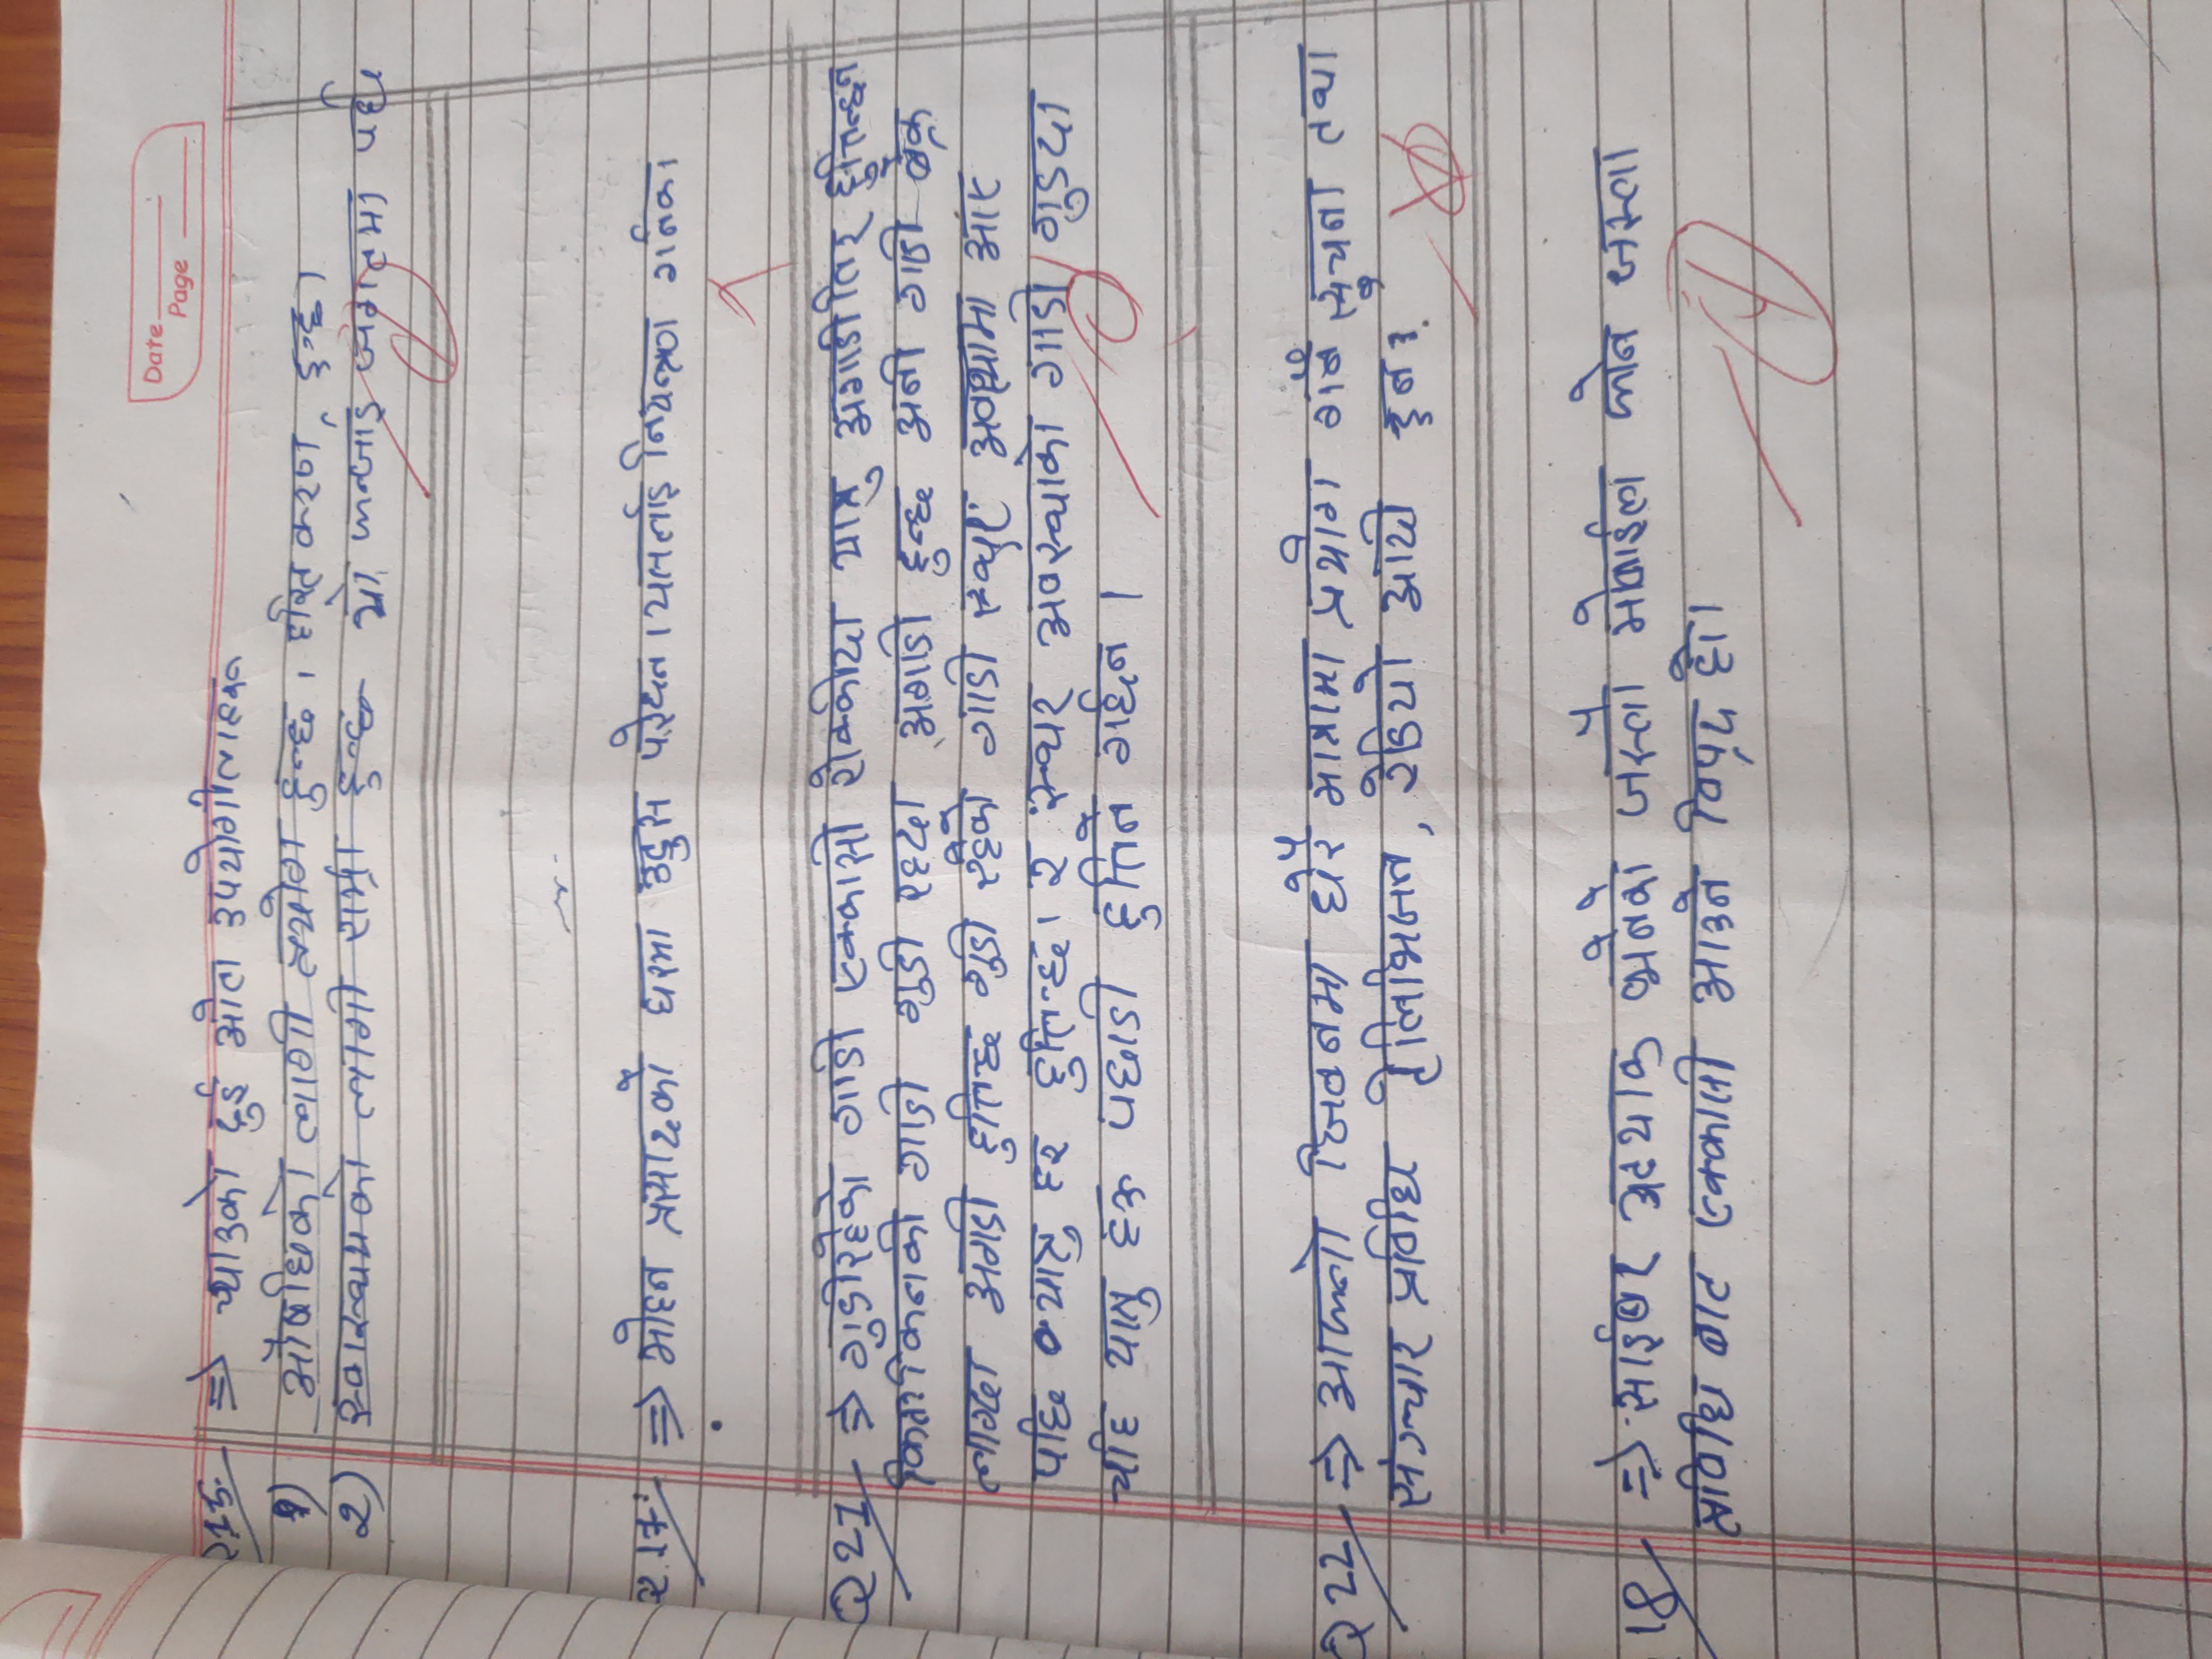 Date
Page
Q15. ⇒ च्याउको दुई ओटा उपयोगीताहरू
१) औषधिको लागी प्रयोग हुन्छ। हरित करण हुन्छ।
२) स्वास्थ्यमको लागी राम्रो हुन्छ यो फन्जाई जगतमा पर्छ
Q.17. ⇒ मोहन प्रसादको घरमा उडुस परेछन। यसलाई नियन्त्रण गर्नका
Q21 ⇒ गुडीरहेको गाडी एक्कासी रोक्कीदा यात्रु अगाडीतिर हुत्तिन्छन
किनकी गाडी गुडी रहदा अगाडी हुन्छ अनी गाडी ब्रेक
लाग्दा अगडी हुत्तिछ गुडी रहेको गाडी स्थीर अवस्थामा आए
पछि यात्रु हरु हुत्तिन्छ। र स्थर अवस्थाको गाडी गुडदा
चहि यात्रु हरु पछाडी हुत्तिने गर्छन।
Q22 ⇒ आफ्नो जिवनमा धेरै मात्रामा प्रयोग गर्ने सुचना तथा
संञ्चार प्रविधि टेलिभिजन, रेडियो आदी हुन?
18 ⇒ साईबर अट्याक भनेको जस्तौ मोबाईल फोन जस्ता
प्रविधि बाट एक्कासी आउने विपद हो।